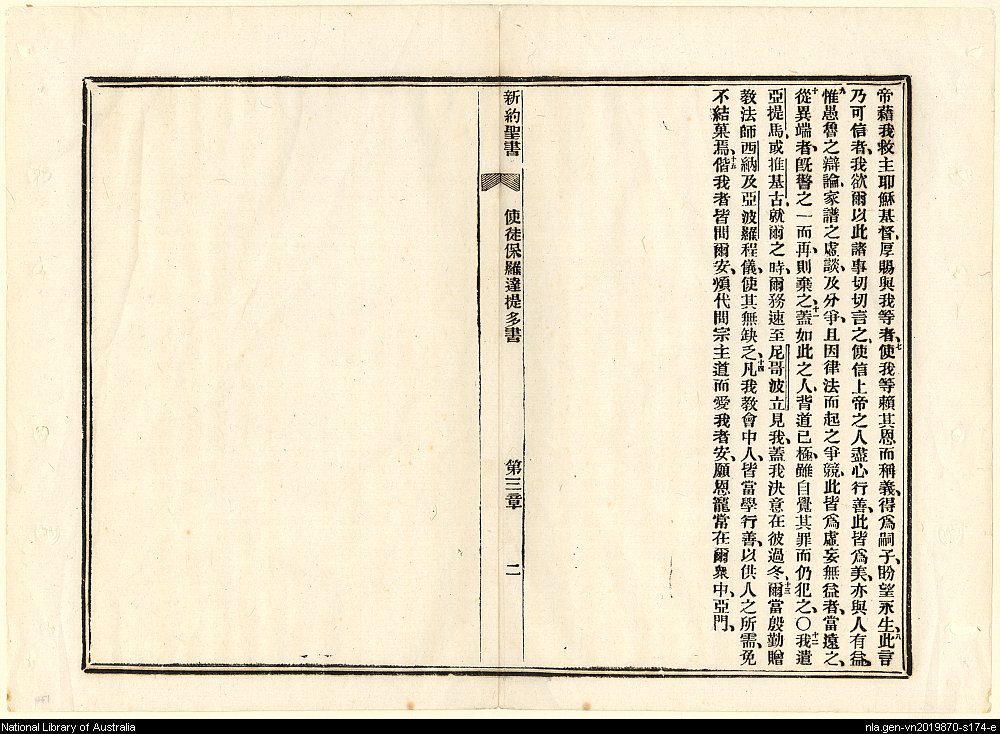 帝藉我救主耶穌基督、厚賜與我等者、七使我等賴其恩而稱義、得爲嗣子、盼望永生、八此言
乃可信者、我欲爾以此諸事切切言之、使信上帝之人盡心行善、此皆爲美、亦與人有益、
九惟愚魯之辯論、家譜之虛談、及分爭、且因律法而起之爭競、此皆爲虛妄無益者、當遠之、
十從異端者、旣警之一而再、則棄之、十一蓋如此之人、背道已極、雖自覺其罪而仍犯之、〇十二我遣
亞提馬、或推基古、就爾之時、爾務速至尼哥波立見我、蓋我決意在彼過冬、十三爾當殷勤贈
教法師西納及亞波羅程儀、使其無缺乏、十四凡我教會中人、皆當學行善、以供人之所需、免
不結菓焉、十五偕我者皆問爾安、煩代問宗主道而愛我者安、願恩寵常在爾衆中、亞門、
新約聖書
使徒保羅達提多書
第三章
二
National Library of Australia
nla.gen-vn2019870-s174-e